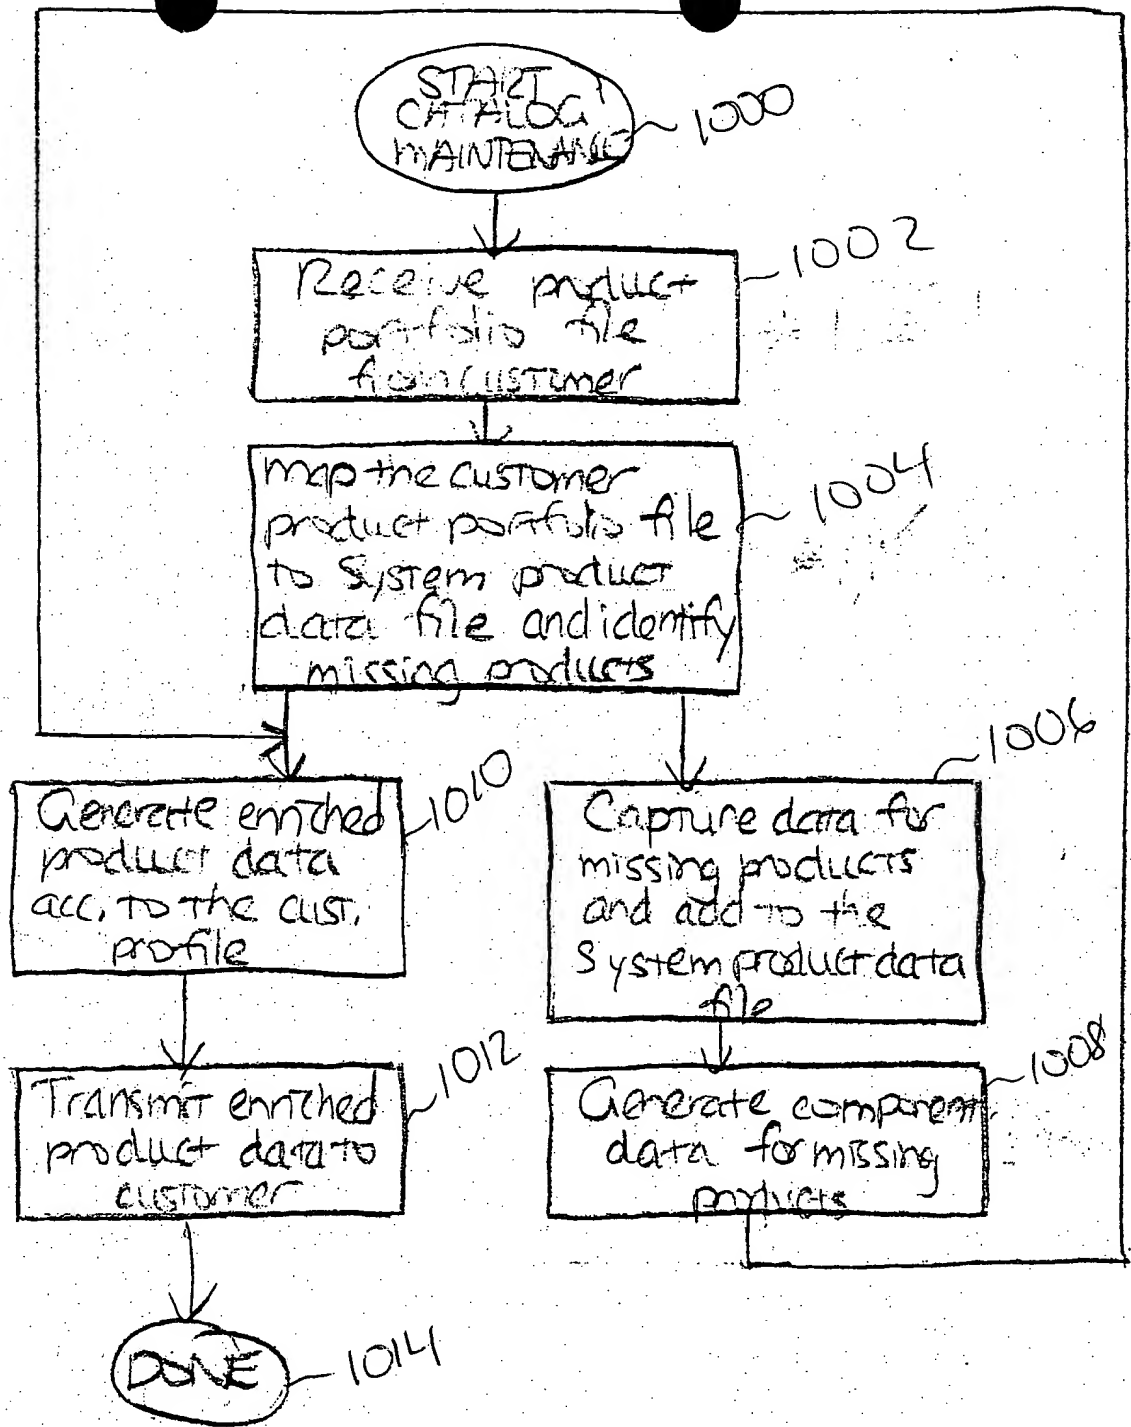 START
CATALOG
MAINTENANCE
1000
1002
Receive product
portfolio file
from customer
1004
map the customer
product portfolio file
to System product
data file and identify
missing products
1006
1010
Generate enriched
product data
acc. to the cust.
profile
Capture data for
missing products
and add to the
System product data
file
1012
1008
Transmit enriched
product data to
customer
Generate component
data for missing
products
DONE
1014